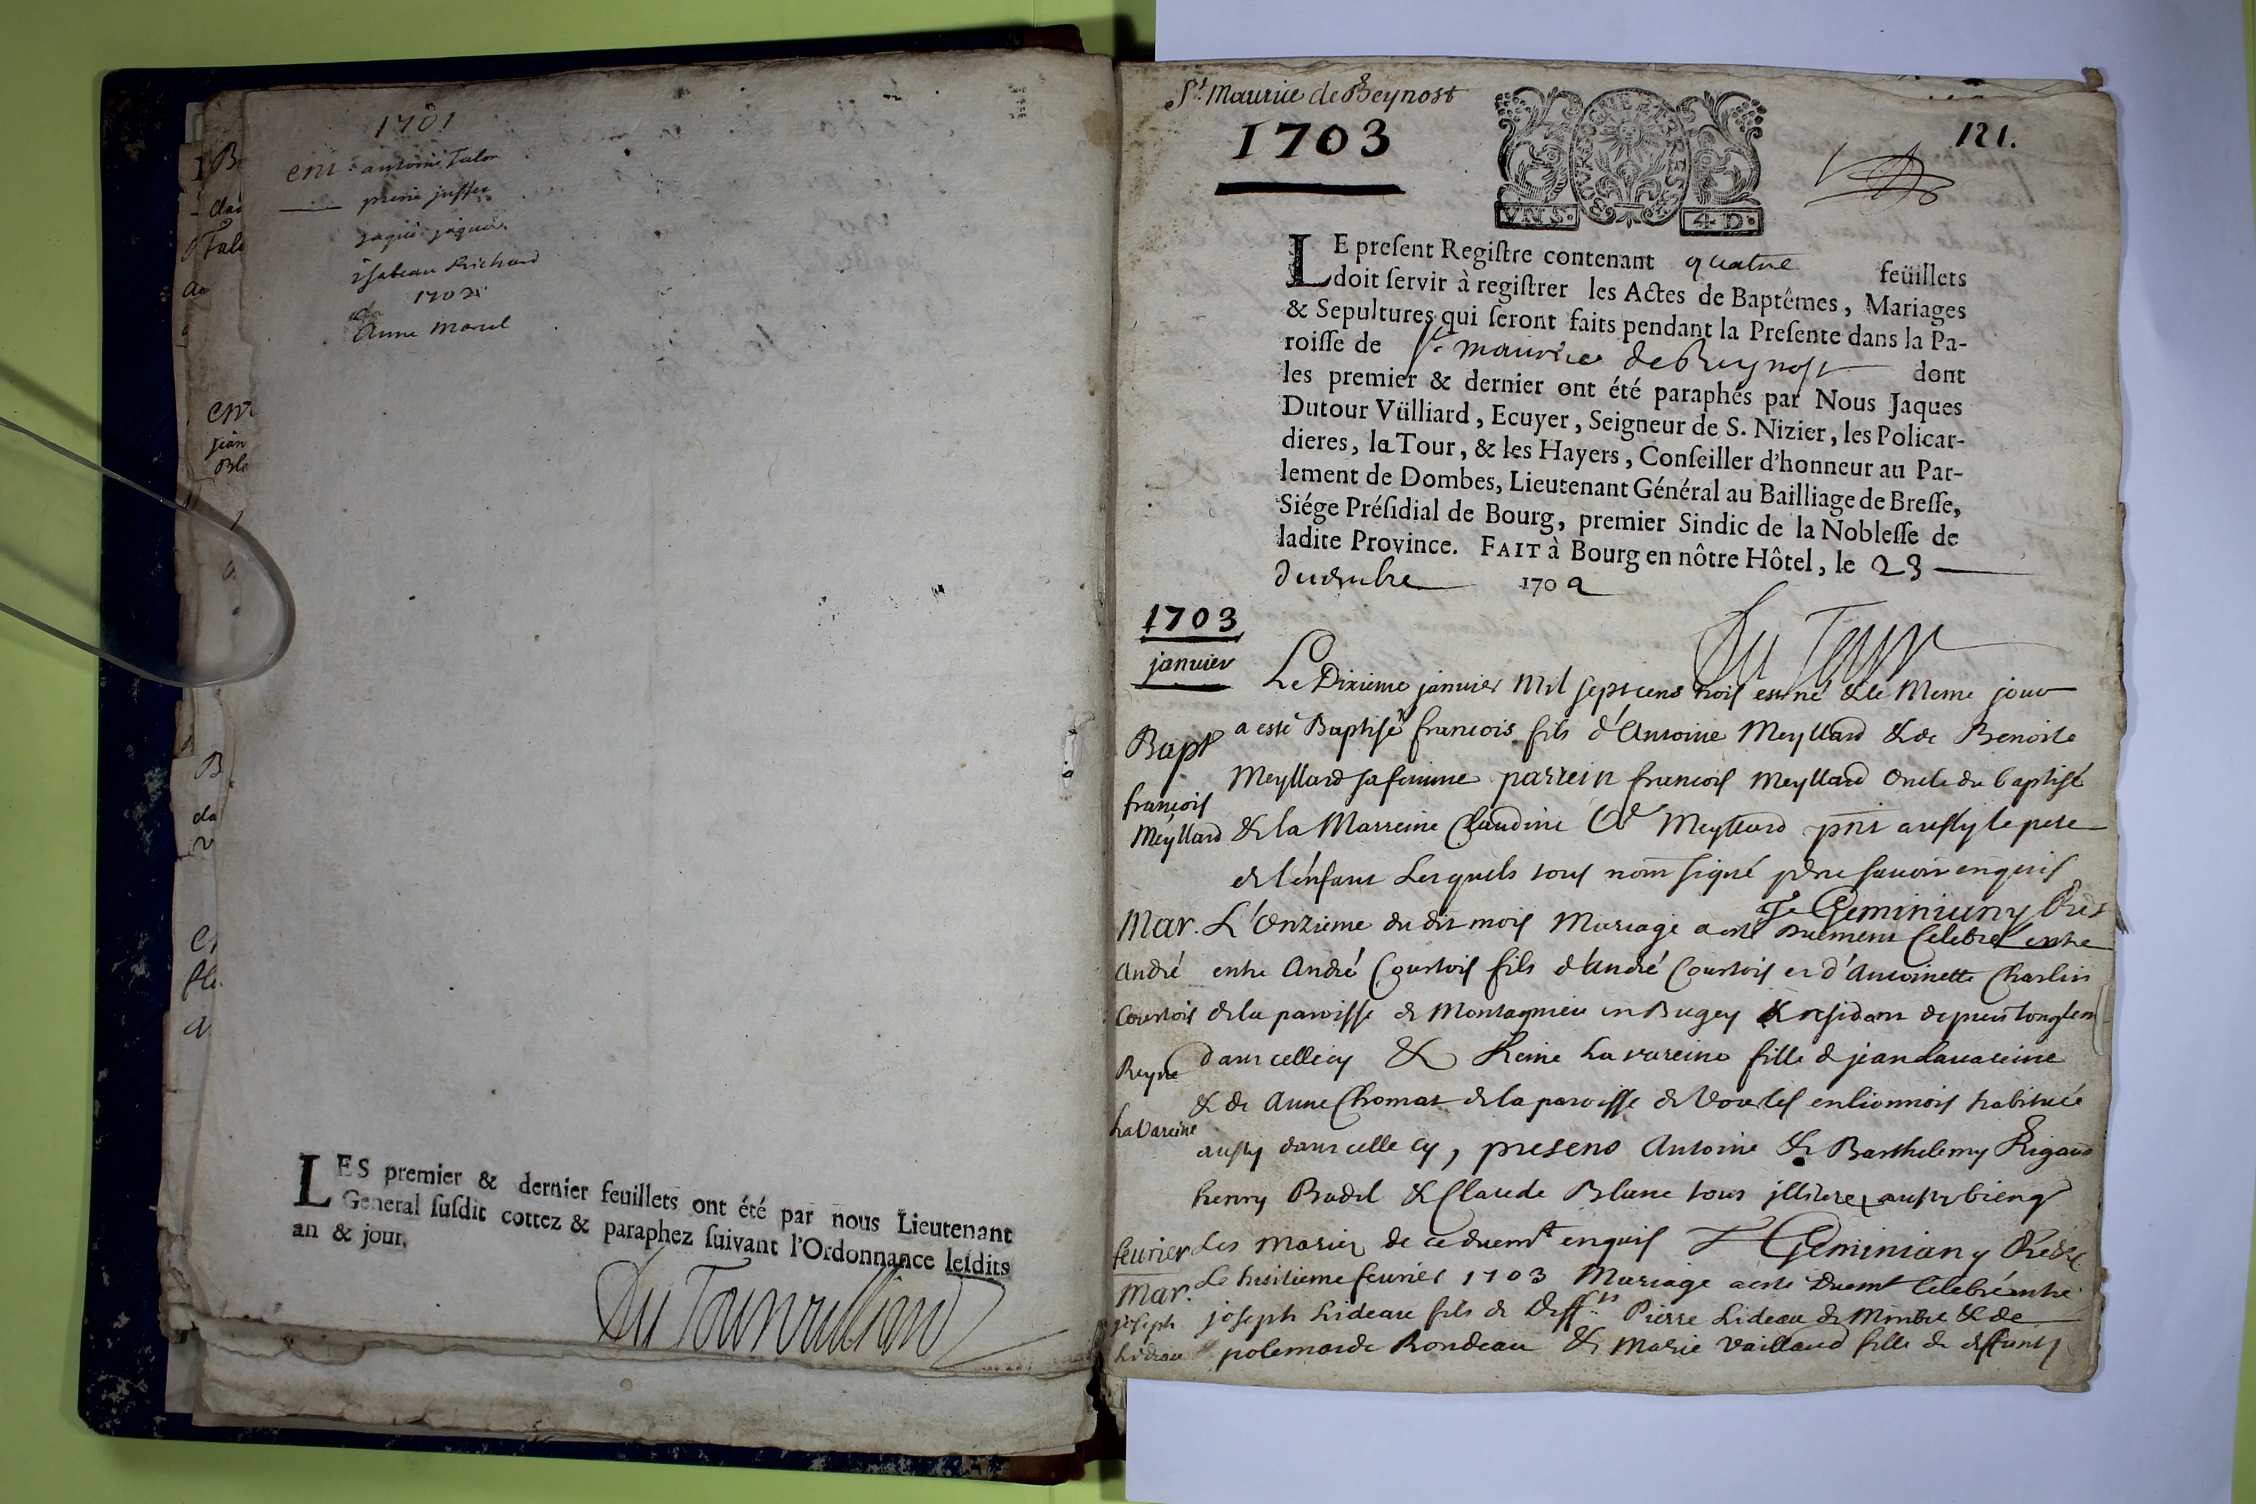 1701
ent. antoine Talon
pierre
jaque
isabeau Richard
1702
Anne Morel
LES premier & dernier feuillets ont été par nous Lieutenant
General susdit cottez & paraphez suivant l'Ordonnance lesdits
an & jour.
Du Tour vulliard
St. Maurice de Beynost
1703
121.
VN S.
4 D.
LE present Registre contenant quatre feüillets
doit servir à registrer les Actes de Baptêmes, Mariages
& Sepultures qui seront faits pendant la Presente dans la Pa-
roisse de St. maurice de Beynost dont
les premier & dernier ont été paraphés par Nous Jaques
Dutour Vülliard, Ecuyer, Seigneur de S. Nizier, les Policar-
dieres, la Tour, & les Hayers, Conseiller d'honneur au Par-
lement de Dombes, Lieutenant Général au Bailliage de Bresse,
Siége Présidial de Bourg, premier Sindic de la Noblesse de
ladite Province. FAIT à Bourg en nôtre Hôtel, le 23
decembre 1702
Du Tour
1703
janvier
Le Dixieme janvier Mil sept cens trois est né & le Meme jour
Bapt.
a esté Baptisé francois fils d'Antoine Meyllard & de Benoite
Meyllard sa femme parrein francois Meyllard Oncle du baptisé
francois
Meyllard
& la Marreine Claudine Meyllard pnt aussy le pere
de l'enfant Lesquels tous n'ont signé pour ne savoir enquis
J Geminiany
Mar.
L'Onzieme du dit mois Mariage a esté duement Celebré entre
André
entre André Courtois fils d'André Courtois et d'Antoinette Charlin
Courtois
de la paroisse de Montagnieu en Bugey & residant depuis longtem
Reyne
dans celle cy & Reine La vareine fille de jean lavareine
& de Anne Chomat de la paroisse de en lionnois habituée
La Vareine
aussy dans celle cy, presens Antoine & Barthelemy Rigaud
henry Badel & Claude Blanc tous illitere aussy bien q
les mariez de ce duemt enquis J Geminiany
fevrier
Mar.
Le huitieme fevrier 1703 Mariage a esté Duemt Celebré entre
joseph
Lideau
joseph Lideau fils de Deff.ts Pierre Lideau de & de
polemarde Rondeau & Marie Vaillaud fille de deffunts